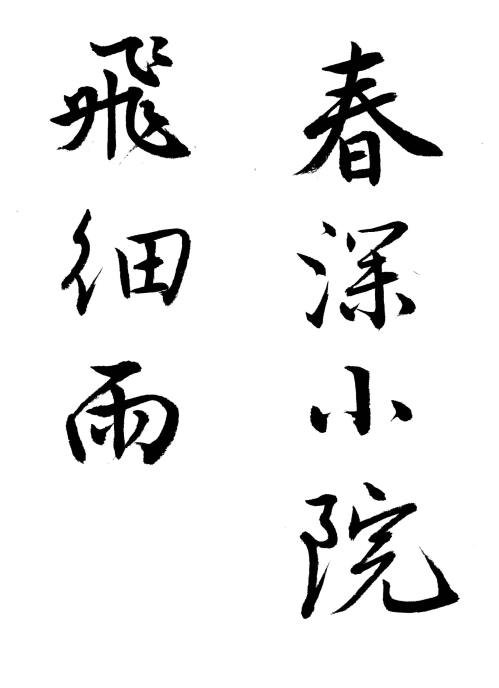 春深小院
飛細雨